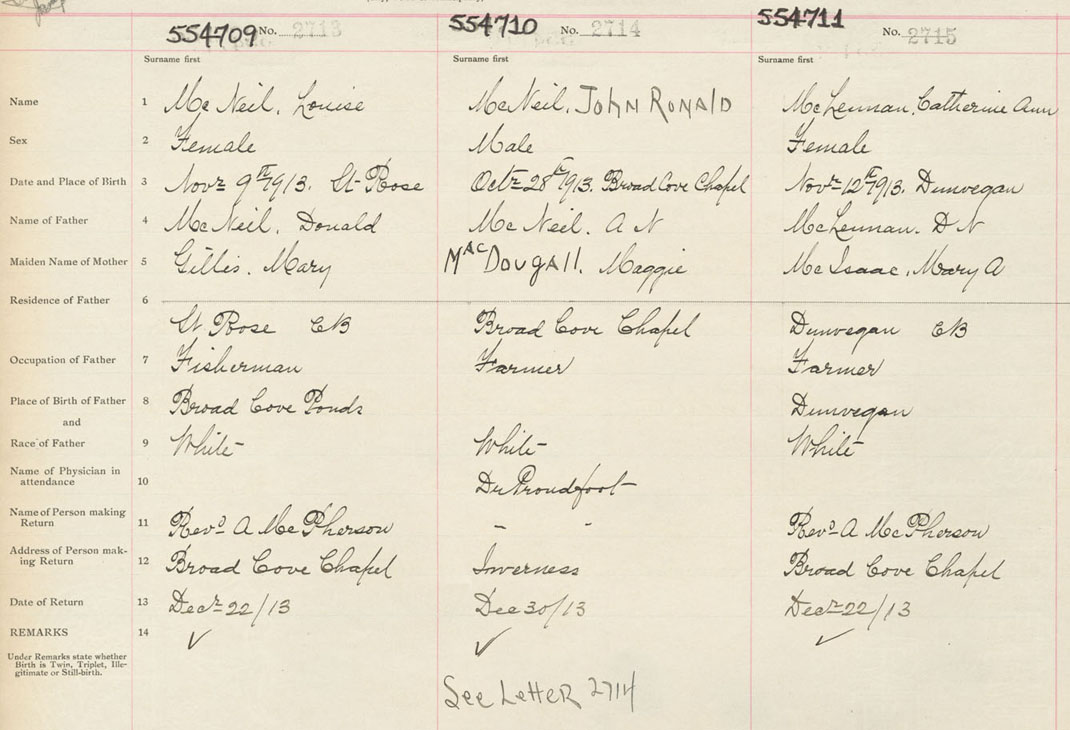 554709 No. 2713 554710 No. 2714 554711 No. 2715
Surname first Surname first Surname first
Name 1 McNeil, Louise McNeil, John Ronald McLennan, Catherine Ann
Sex 2 Female Male Female
Date and Place of Birth 3 Novr 9th 1913. St Rose Octr 28th 1913. Broad Cove Chapel Novr 12th 1913. Dunvegan
Name of Father 4 McNeil, Donald McNeil, A N McLennan, D N
Maiden Name of Mother 5 Gillis, Mary MacDougall, Maggie McIsaac, Mary A
Residence of Father 6
St Rose CB Broad Cove Chapel Dunvegan CB
Occupation of Father 7 Fisherman Farmer Farmer
Place of Birth of Father 8 Broad Cove Ponds Dunvegan
and
Race of Father 9 White White White
Name of Physician in
attendance 10 Dr Proudfoot
Name of Person making
Return 11 Revd A McPherson - - Revd A McPherson
Address of Person mak-
ing Return 12 Broad Cove Chapel Inverness Broad Cove Chapel
Date of Return 13 Decr 22/13 Dec 30/13 Decr 22/13
REMARKS 14 ✓ ✓ ✓
Under Remarks state whether
Birth is Twin, Triplet, Ille-
gitimate or Still-birth.
See Letter 2714